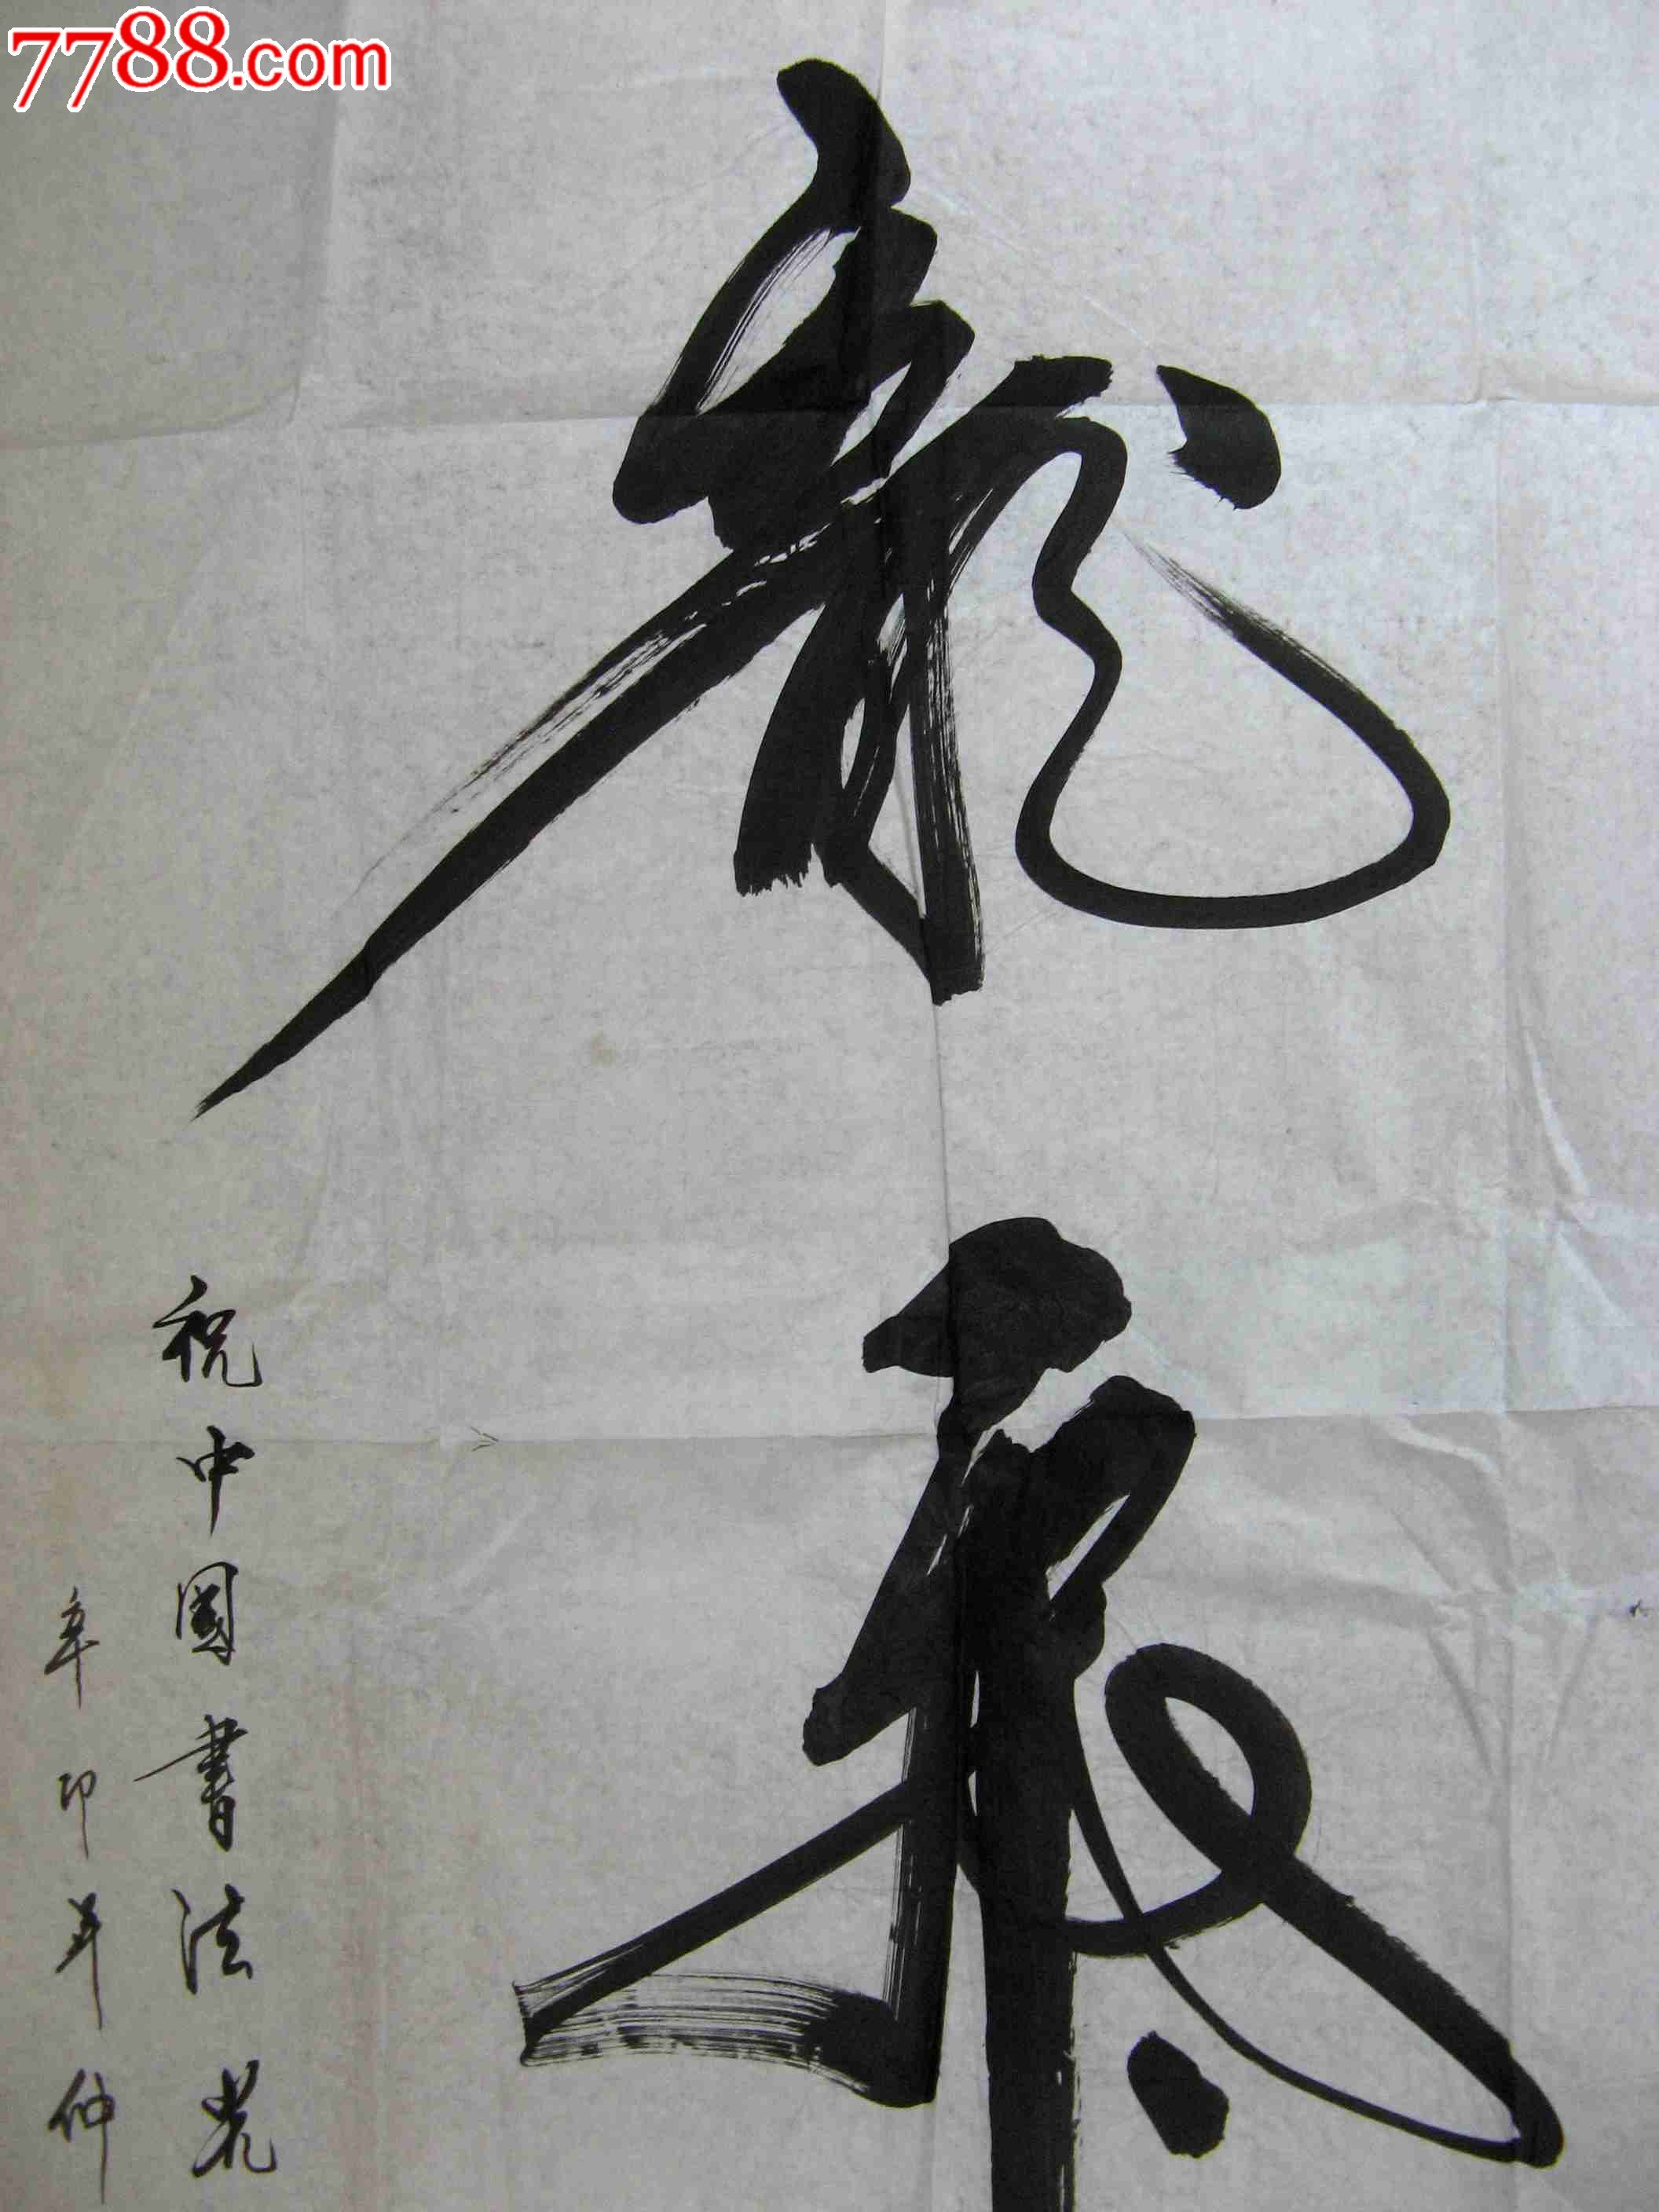 7788.com
龍
祝中國書法光
辛卯年仲